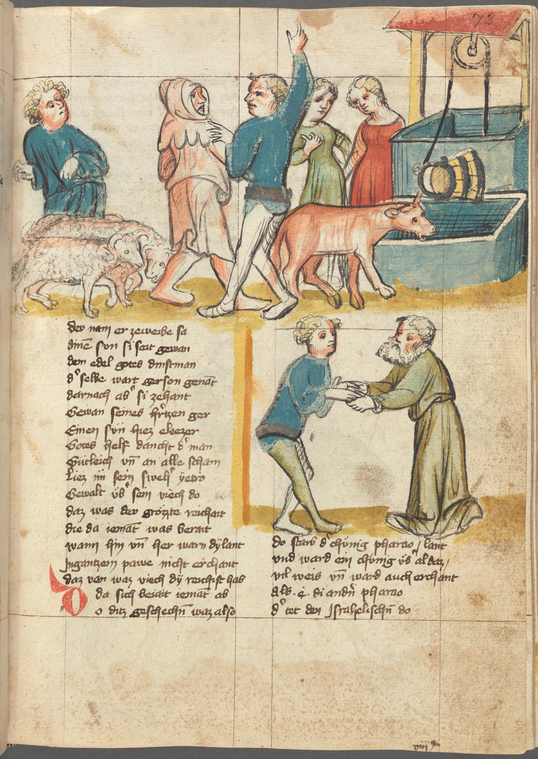 73
der nam er ze weibe sa
dine svn si seit gewan
dem edel gotes dinstman
d' selbe wart gerson genāt
darnach ab' si zehant
Gewan seines h'rzen ger
Einen svn hiez eleezer
Gotes helf dancht d' man
Gütleich vn̄ an alle scham
Liez im sein swelh' yetro
Gewalt vb' sein viech do
daz was der grözte reichait
die da iemāt was berait
wann hin vn̄ her warn dy lant
Ingantzen pawe nicht erchant
daz von waz viech dy reichist hab
da sich beiait iemāt ab
Do ditz geschechn̄ waz also
do starb d' chünig pharao / lant
vnd ward ein chünig vb' al daz /
vil weis vn̄ ward auch erchant
als. e. di andn̄ pharao
d' tet den Israhelischn̄ do
viiij